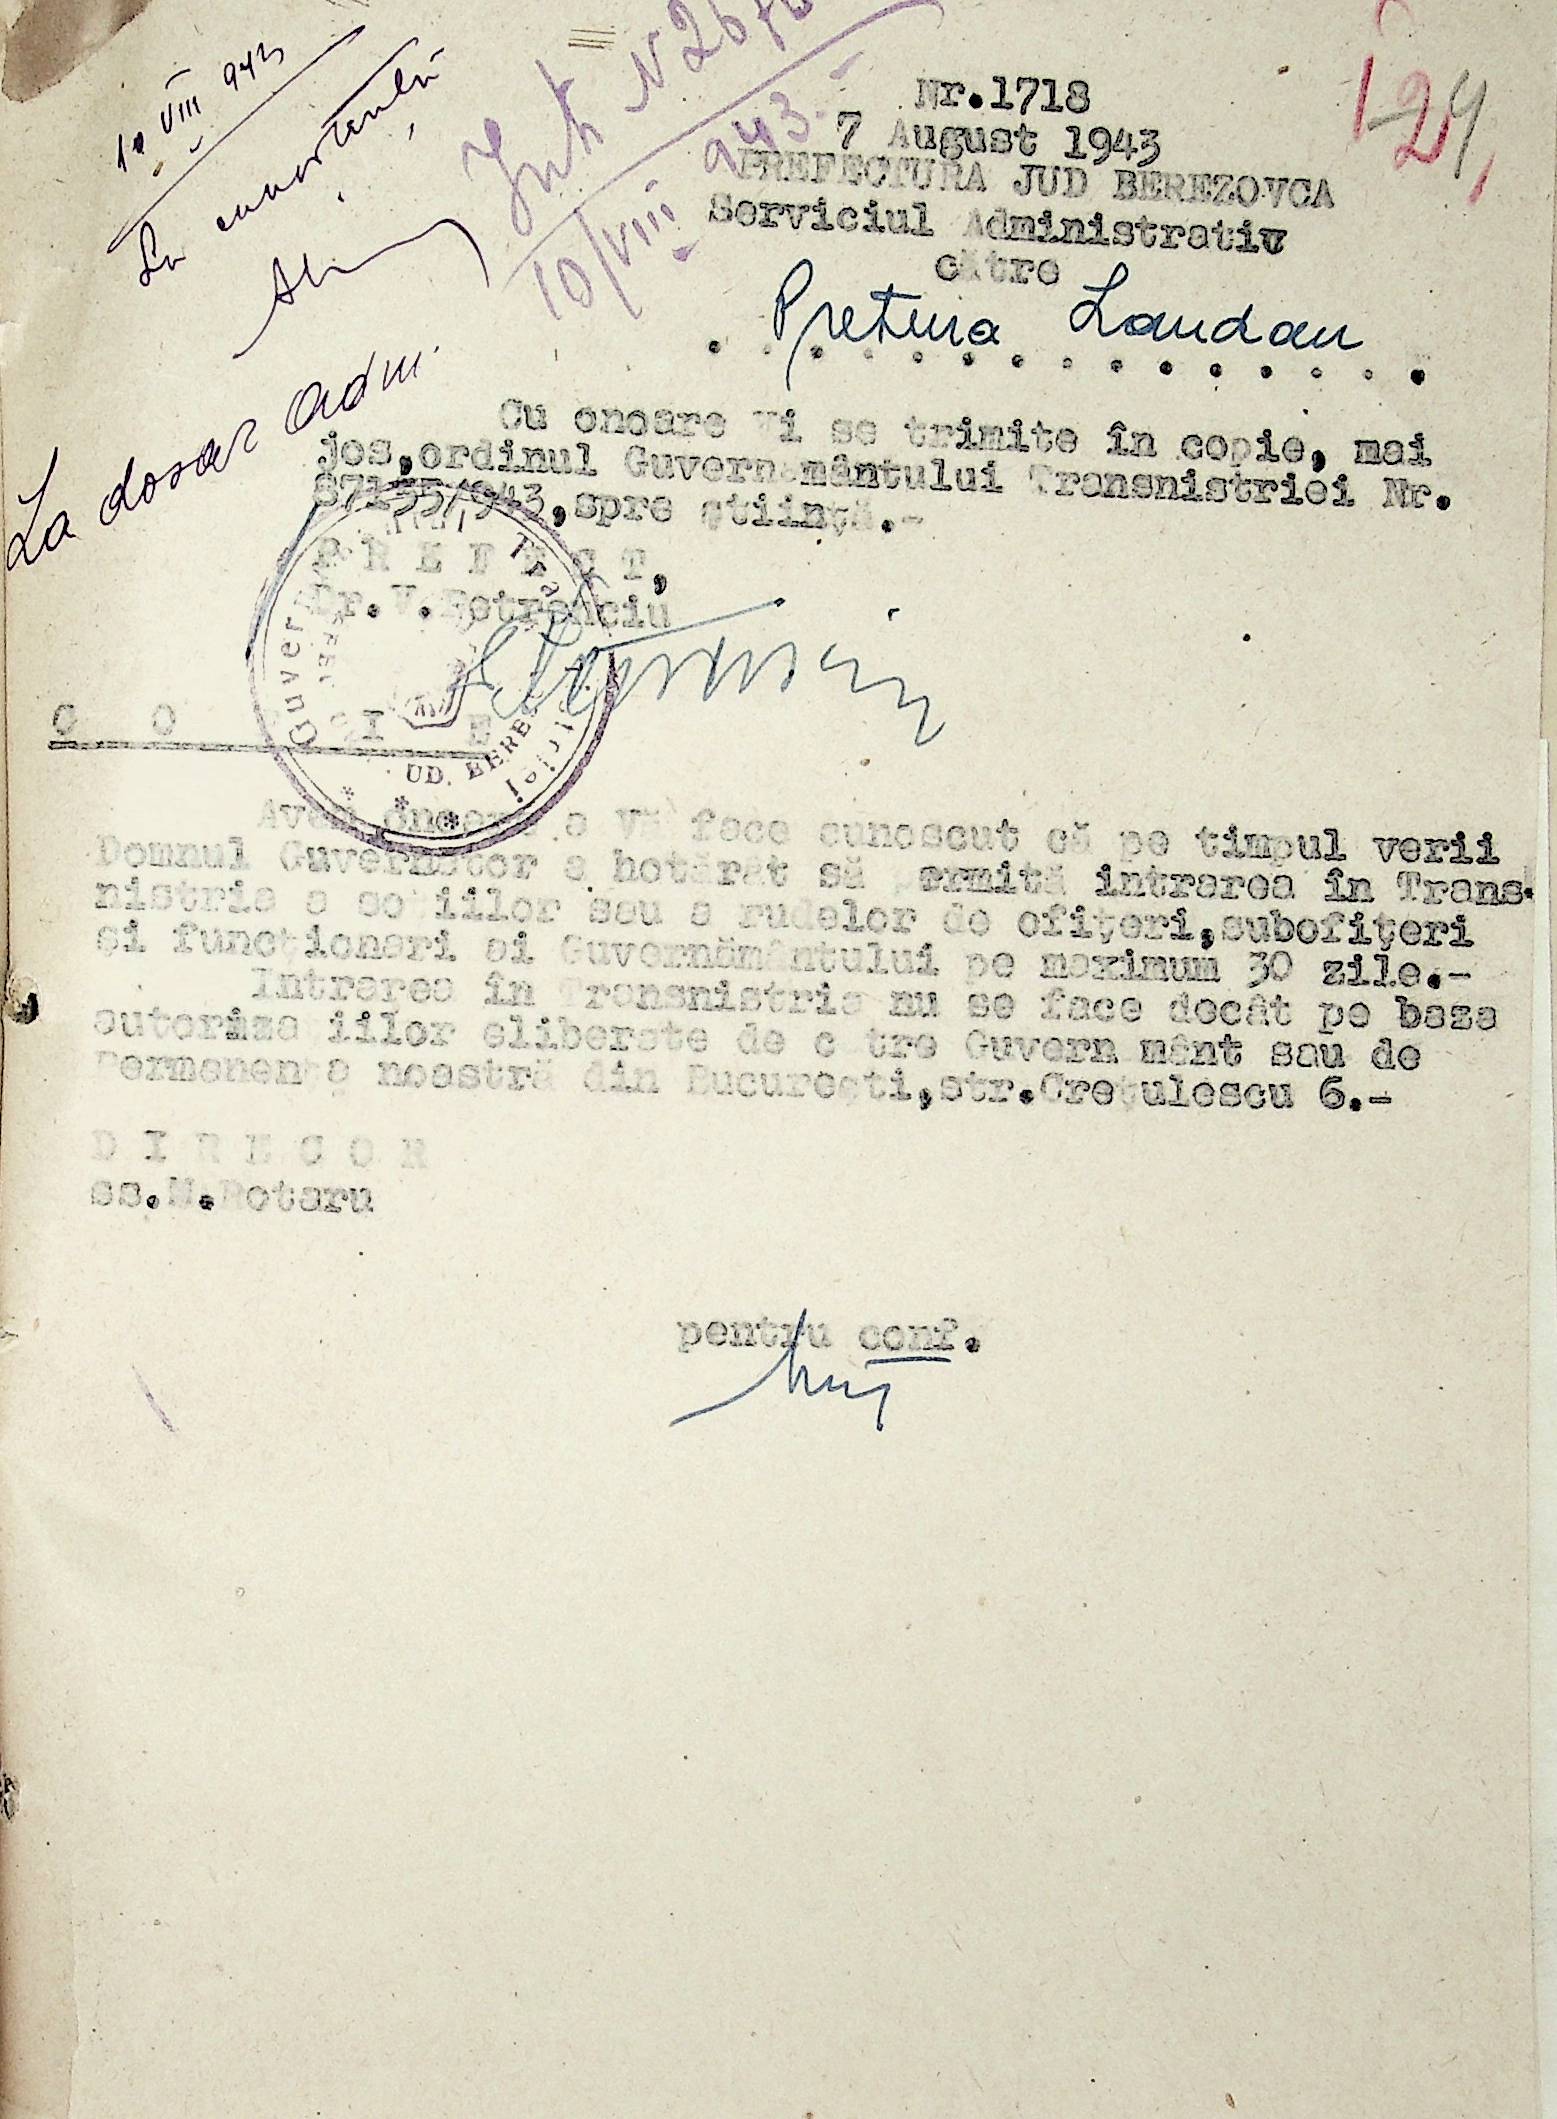 10 VIII 943
La cunoștință
Int. N 26
10/VIII 943.
La dosar adm.
124
Nr.1718
7 August 1943
PREFECTURA JUD BEREZOVCA
Serviciul Administrativ
către
Pretura Landau
Cu onoare Vi se trimite în copie, mai
jos,ordinul Guvernământului Transnistriei Nr.
87155/943,spre știință.-
P R E F E C T,
Dr.V.
C O P I E
Avem onoarea a Vă face cunoscut că pe timpul verii
Domnul Guvernator a hotărât să permită intrarea în Trans-
nistria a soțiilor sau a rudelor de ofițeri,subofițeri
și funcționari ai Guvernământului pe maximum 30 zile.-
Intrarea în Transnistria nu se face decât pe baza
autorizațiilor eliberate de către Guvernământ sau de
Permanența noastră din București,str.Crețulescu 6.-
D I R E C O R
ss.M.Rotaru
pentru conf.